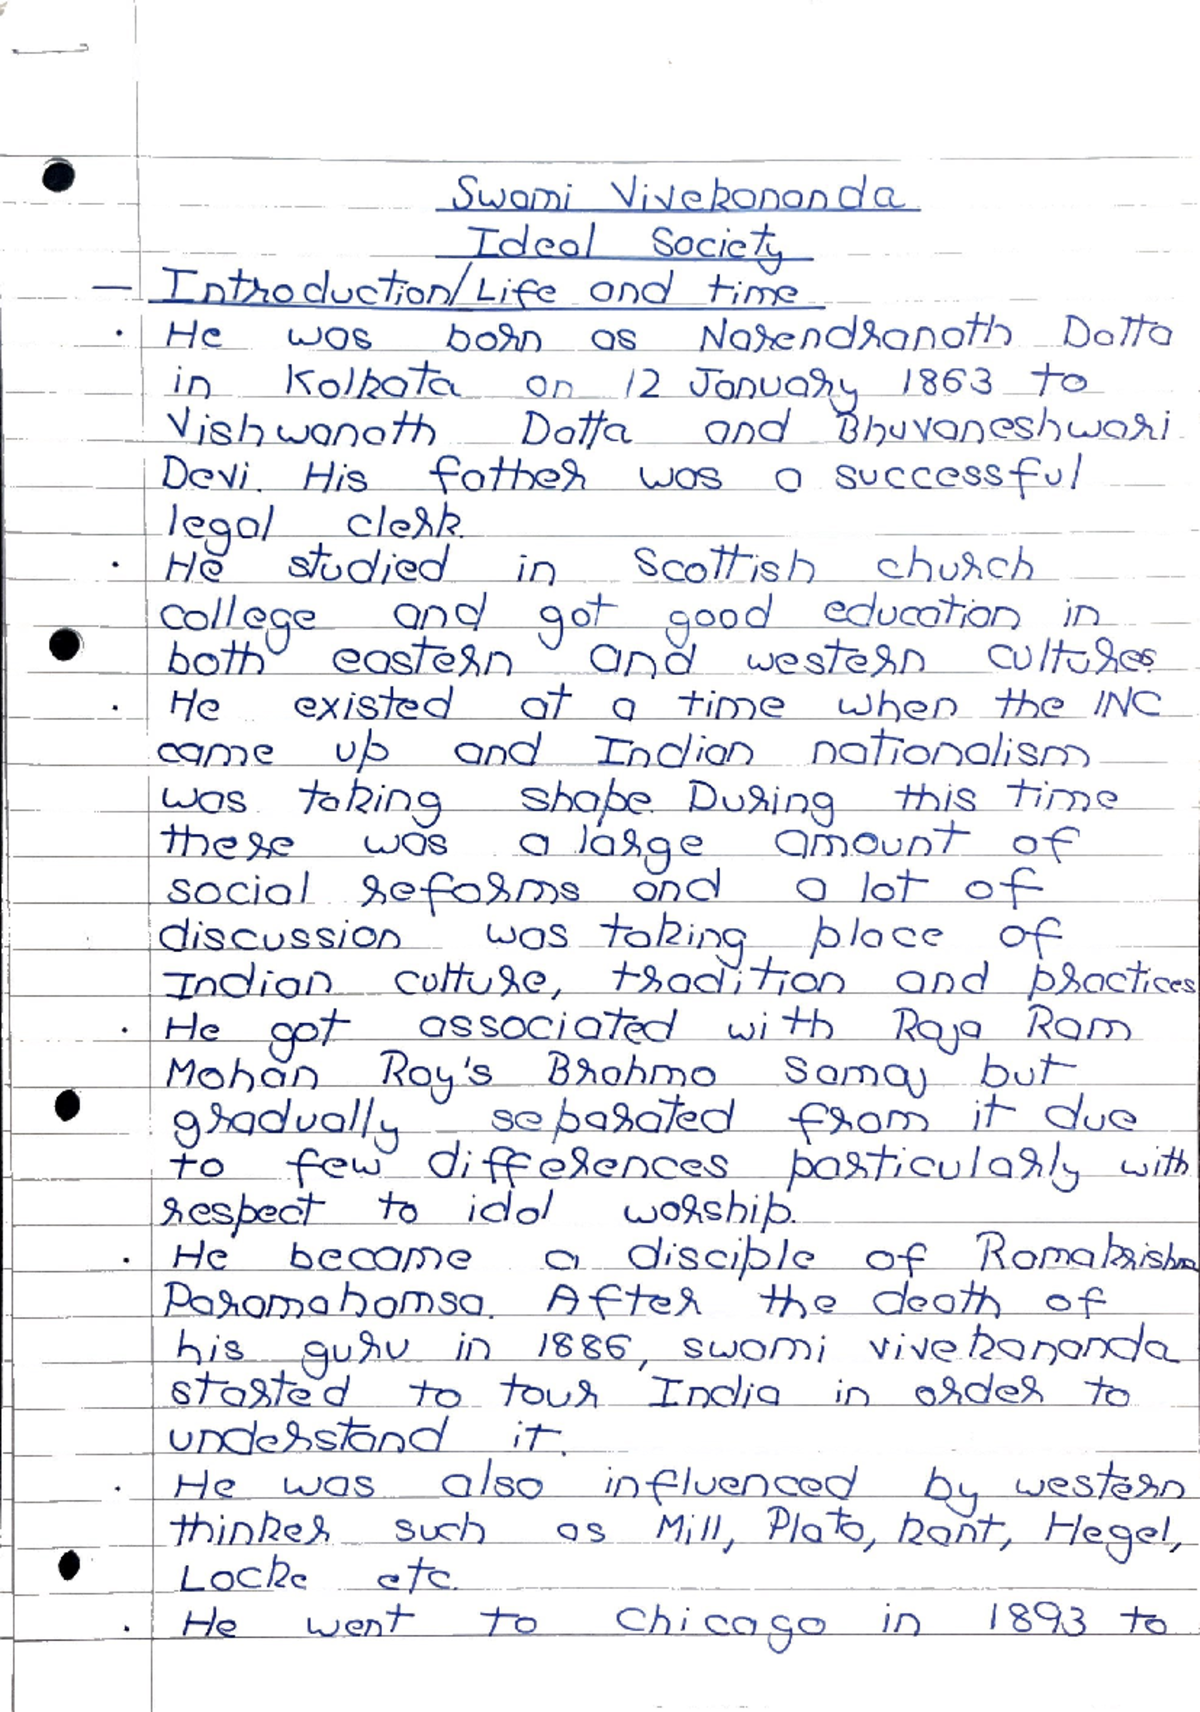 Swami Vivekananda
Ideal Society
— Introduction/Life and time
· He was born as Narendranath Datta
in Kolkata on 12 January 1863 to
Vishwanath Datta and Bhuvaneshwari
Devi. His father was a successful
legal clerk.
· He studied in Scottish church
college and got good education in
both eastern and western cultures.
· He existed at a time when the INC
came up and Indian nationalism
was taking shape. During this time
there was a large amount of
social reforms and a lot of
discussion was taking place of
Indian culture, tradition and practices
· He got associated with Raja Ram
Mohan Roy's Brahmo Samaj but
gradually separated from it due
to few differences particularly with
respect to idol worship.
· He became a disciple of Ramakrishna
Paramahamsa. After the death of
his guru in 1886, swami vivekananda
started to tour India in order to
understand it.
· He was also influenced by western
thinker such as Mill, Plato, kant, Hegel,
Locke etc.
· He went to Chicago in 1893 to